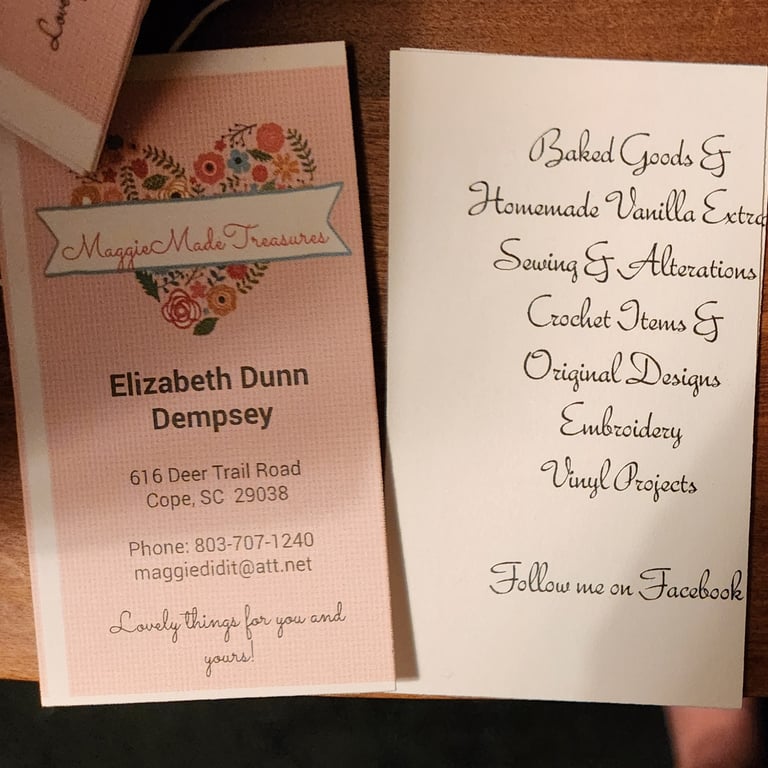 Lovely
MaggieMadeTreasures
Elizabeth Dunn
Dempsey
616 Deer Trail Road
Cope, SC 29038
Phone: 803-707-1240
maggiedidit@att.net
Lovely things for you and
yours!
Baked Goods &
Homemade Vanilla Extra
Sewing & Alterations
Crochet Items &
Original Designs
Embroidery
Vinyl Projects
Follow me on Facebook